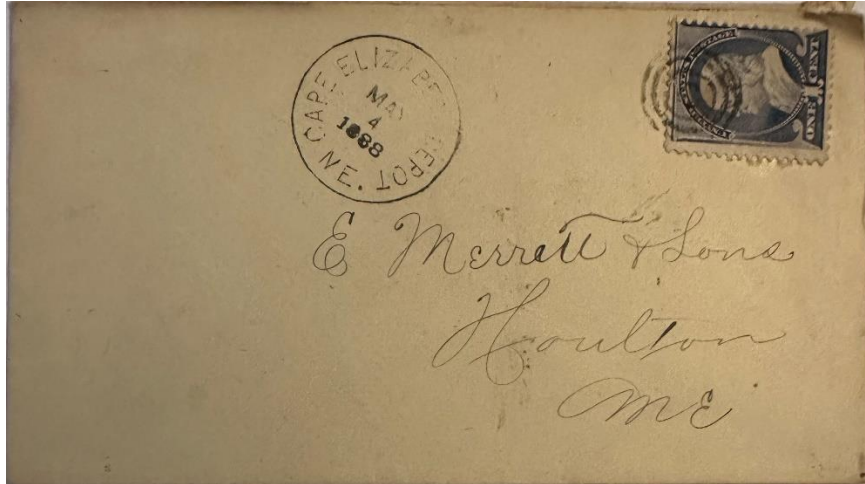 CAPE ELIZABETH DEPOT
MAY
4
1888
ME.
UNITED STATES POSTAGE
ONE 1 CENT
E Merrett & Sons
Houlton
Me